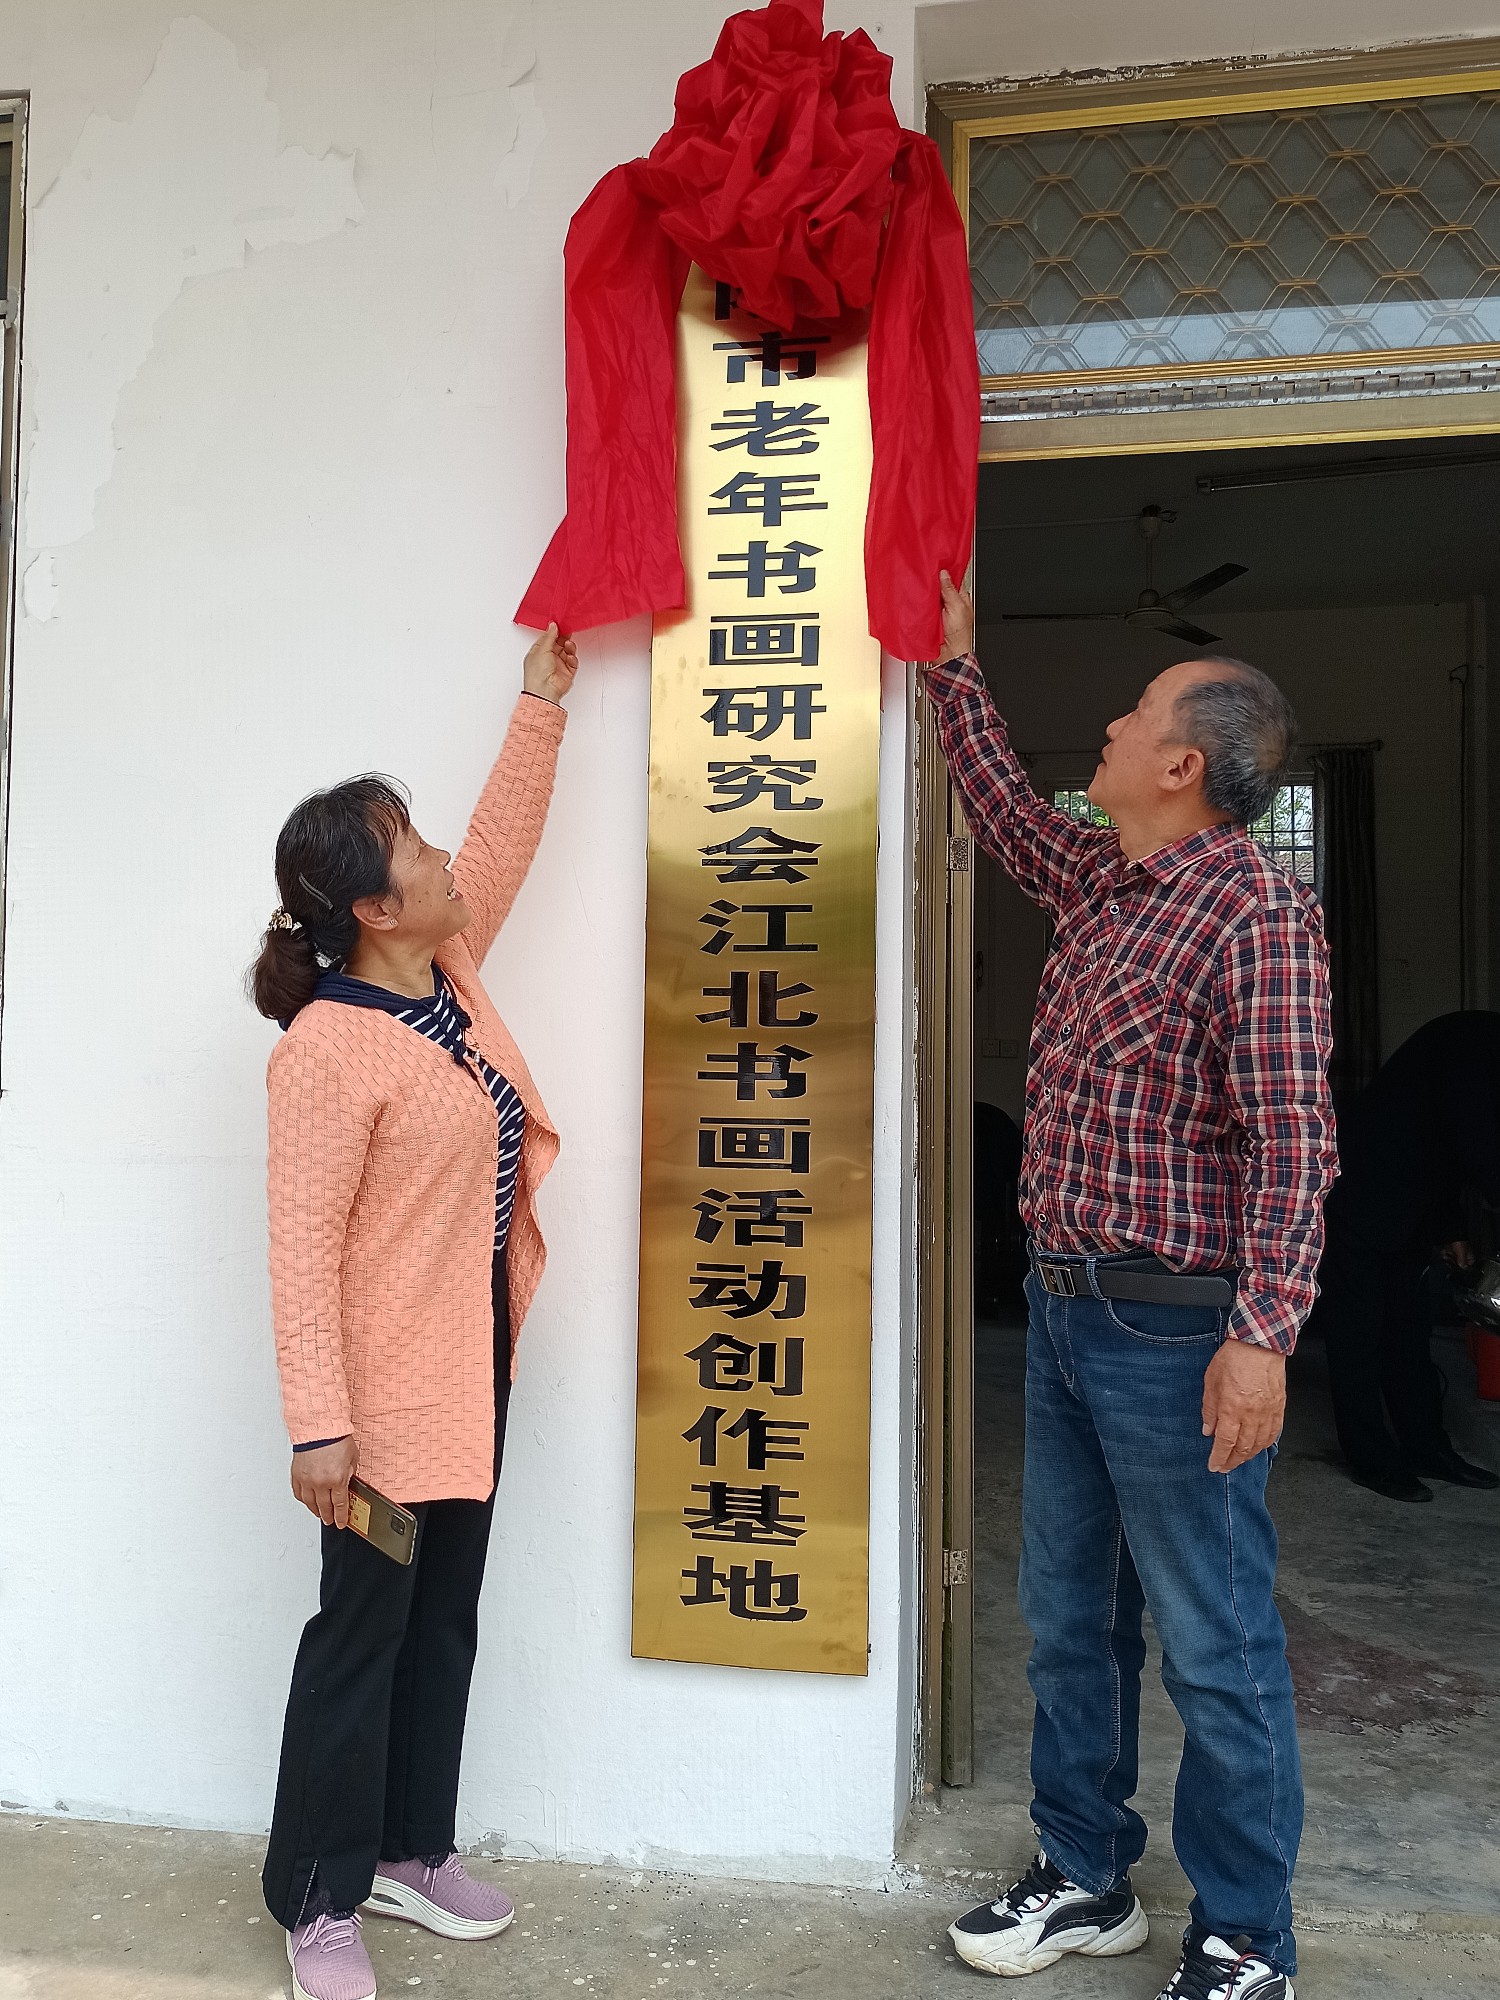 市老年书画研究会江北书画活动创作基地